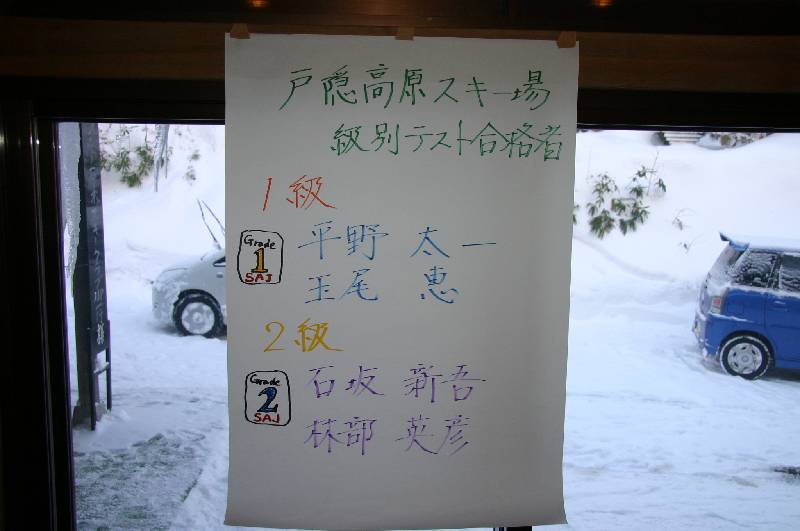 戸隠高原スキー場
級別テスト合格者
1級
Grade
1
SAJ
平野 太一
玉尾 恵
2級
Grade
2
SAJ
石坂 新吾
林部 英彦